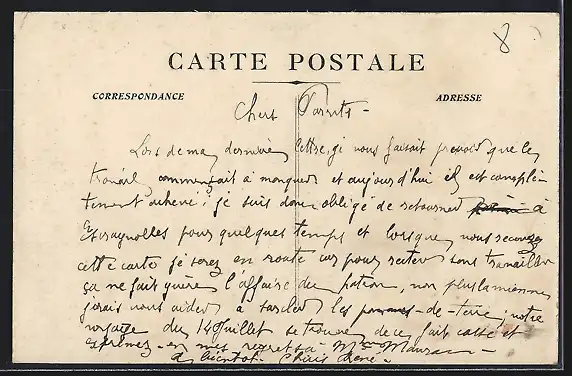 8
CARTE POSTALE
CORRESPONDANCE
ADRESSE
Chers Parents -
Lors de ma dernière lettre, je vous faisait prevoir que le
travail commençait a manquer et aujourd'hui il est complè-
tement achevé; je suis donc obligé de retourner à
pour quelques temps et lorsque vous recevrez
cette carte je serez en route car pour rester sans travailler
ça ne fait guère l'affaire du patron, non plus la mienne
j'irais vous aider à sarcler les pommes-de-terre; notre
voyage du 14 Juillet se trouve de ce fait cassé et
exprimez-en mes regrets à Mme
A bientôt. René -